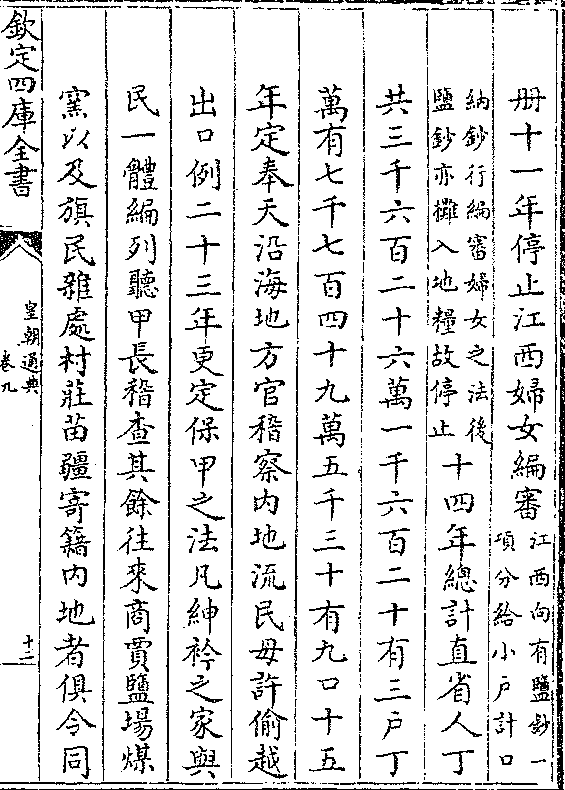 册十一年停止江西婦女編審江西向有鹽鈔一項分給小户計口
納鈔行編審婦女之法後鹽鈔亦攤入地糧故停止十四年總計直省人丁
共三千六百二十六萬一千六百二十有三户丁
萬有七千七百四十九萬五千三十有九口十五
年定奉天沿海地方官稽察内地流民毋許偷越
出口例二十三年更定保甲之法凡紳衿之家與
民一體編列聽甲長稽查其餘往來商賈鹽場煤
窯以及旗民雜處村莊苗疆寄籍内地者俱令同
欽定四庫全書
皇朝通典
卷九
十二